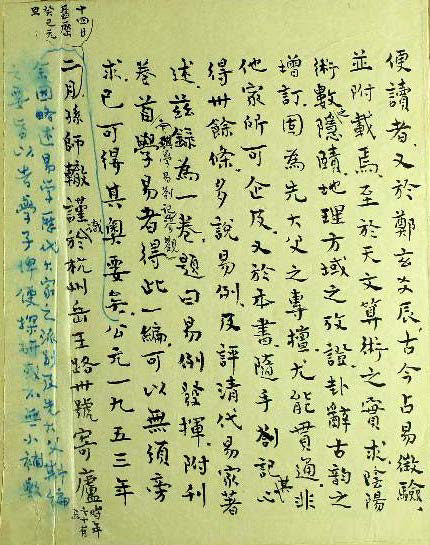 便讀者又於鄭玄爻辰古今占易徵驗
並附載焉至於天文算術之實求陰陽
術數之隱賾地理方域之攷證卦辭古韵之
增訂固為先大父之專擅尤能貫通非
他家所可企及又於本書隨手劄記其心
得卅餘條多說易例及評清代易家著
述茲錄為一卷題曰易例發揮附刊
卷首學易者得此一編可以無須旁
學易劄記參觀
求已可得其奧要矣公元一九五三年
二月孫師轍謹識於杭州岳王路卅號寄廬時年
十四日
舊曆
癸巳元
旦
余因略述易學歷代大家之派別及先大父斯編
之要旨以告學子俾便探研或不無小補歟